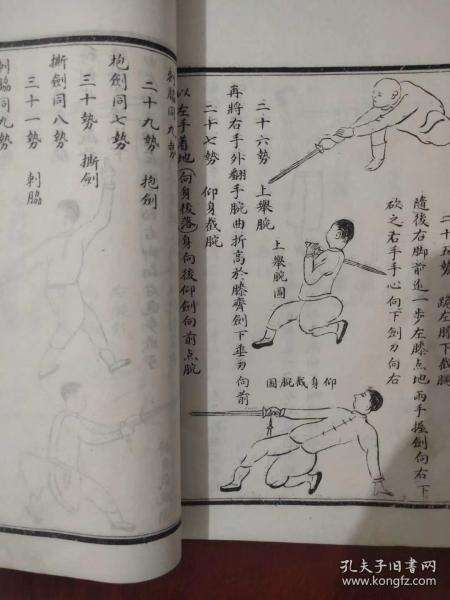 二十五勢　跪左膝下截腕
隨後右脚前進一步左膝点地兩手握劍向右下
砍之右手手心向下劍刀向右
二十六勢　上舉腕
上舉腕圖
再將右手外翻手腕曲折高於膝齊劍下垂刃向前
二十七勢　仰身截腕
仰身截腕圖
以左手着地(向身後落)身向後仰劍向前点腕
刺脇同九勢
二十九勢　抱劍
抱劍同七勢
三十勢　撕劍
撕劍同八勢
三十一勢　刺脇
刺脇同九勢
孔夫子旧书网
www.kongfz.com